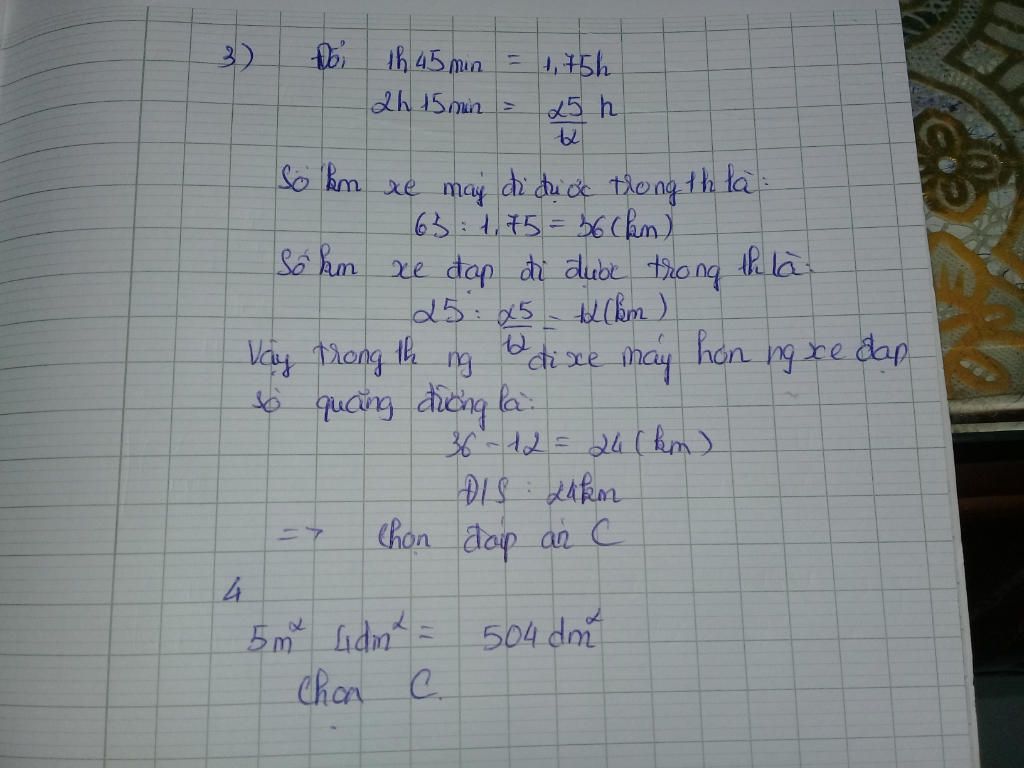 3) Đổi 1h 45 min = 1,75h
2h 15 min = 25/12 h
Số km xe máy đi được trong 1h là:
63 : 1,75 = 36 (km)
Số km xe đạp đi được trong 1h là:
25 : 25/12 = 12 (km)
Vậy trong 1h ng đi xe máy hơn ng xe đạp
số quãng đường là:
36 - 12 = 24 (km)
Đ/S : 24km
=> Chọn đáp án C
4
5m² 4dm² = 504 dm²
Chọn C.